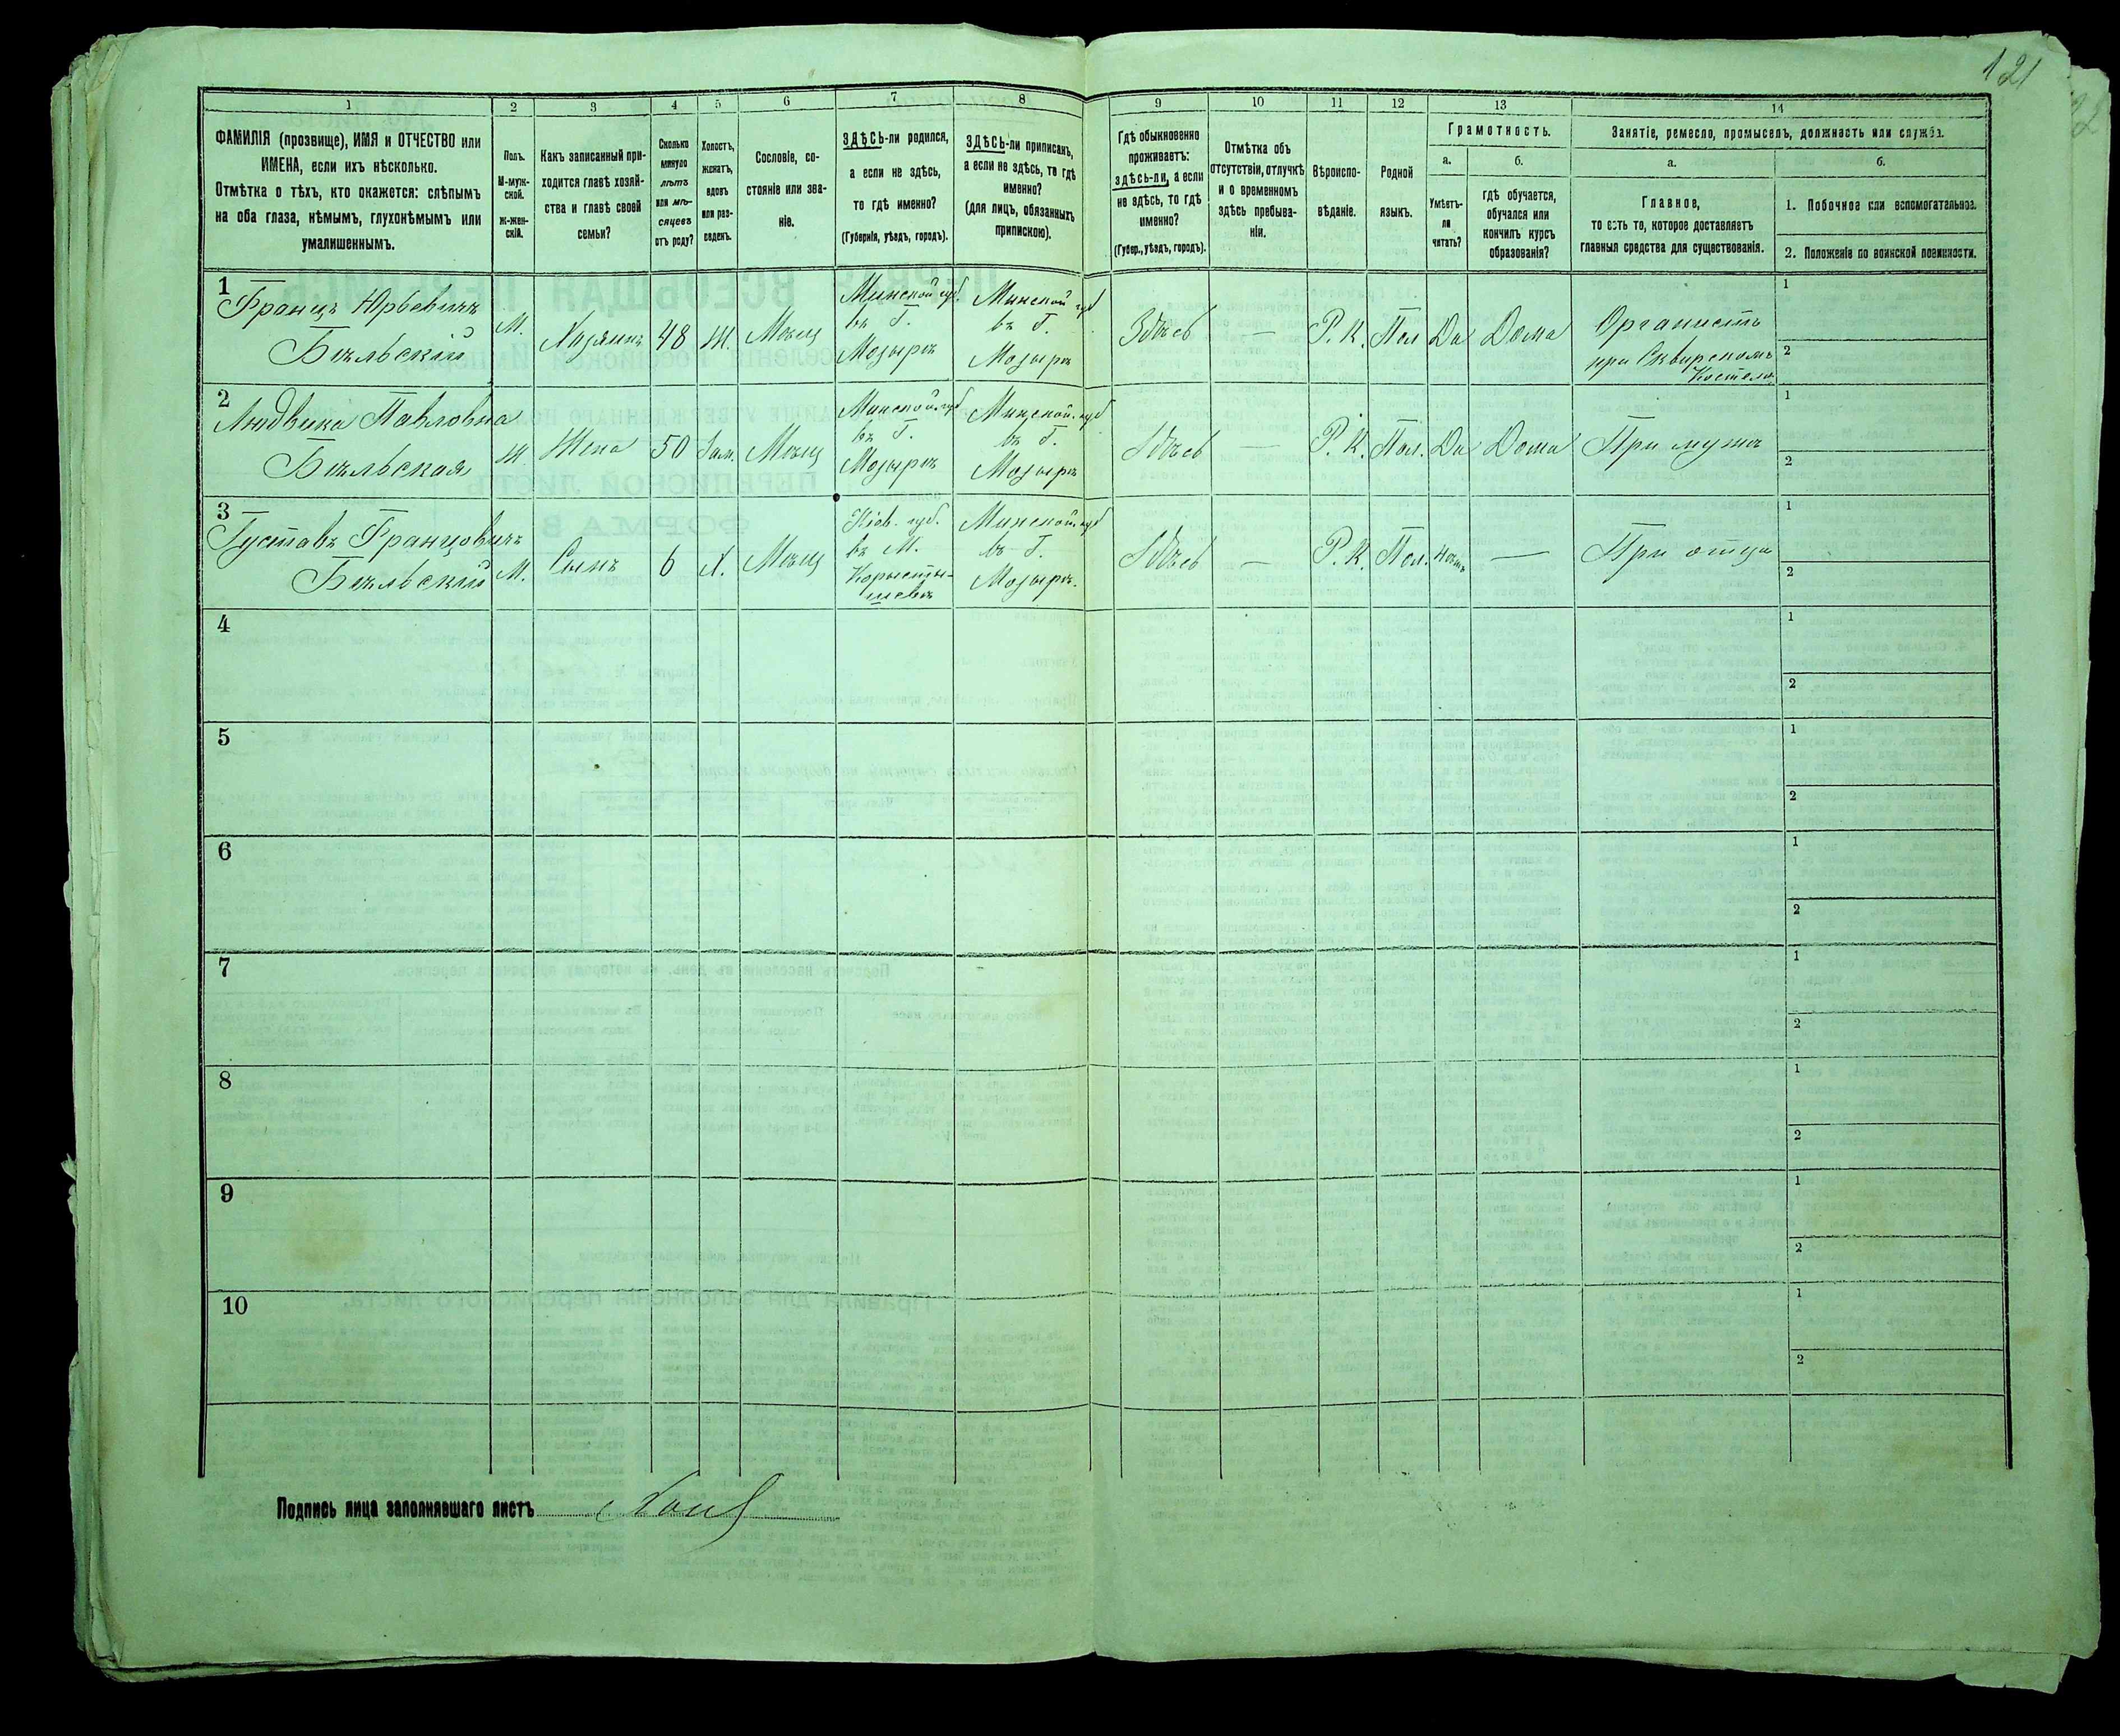 121
1
2
3
4
5
6
7
8
9
10
11
12
13
14
ФАМИЛІЯ (прозвище), ИМЯ и ОТЧЕСТВО или
ИМЕНА, если ихъ нѣсколько.
Отмѣтка о тѣхъ, кто окажется: слѣпымъ
на оба глаза, нѣмымъ, глухонѣмымъ или
умалишеннымъ.
Полъ.
М-муж-
ской.
Ж-жен-
скій.
Какъ записанный при-
ходится главѣ хозяй-
ства и главѣ своей
семьи?
Сколько
минуло
лѣтъ
или мѣ-
сяцевъ
отъ роду?
Холостъ,
женатъ,
вдовъ
или раз-
веденъ.
Сословіе, со-
стояніе или зва-
ніе.
ЗДѢСЬ-ли родился,
а если не здѣсь,
то гдѣ именно?
(Губернія, уѣздъ, городъ).
ЗДѢСЬ-ли приписанъ,
а если не здѣсь, то гдѣ
именно?
(для лицъ, обязанныхъ
припискою).
Гдѣ обыкновенно
проживаетъ:
здѣсь-ли, а если
не здѣсь, то гдѣ
именно?
(Губер., уѣздъ, городъ).
Отмѣтка объ
отсутствіи, отлучкѣ
и о временномъ
здѣсь пребыва-
ніи.
Вѣроиспо-
вѣданіе.
Родной
языкъ.
Грамотность.
а.
б.
Умѣетъ-
ли
читать?
гдѣ обучается,
обучался или
кончилъ курсъ
образованія?
Занятіе, ремесло, промыселъ, должность или служба.
а.
б.
Главное,
то есть то, которое доставляетъ
главныя средства для существованія.
1. Побочное или вспомогательное.
2. Положеніе по воинской повинности.
1
Францъ Юрьевичъ
Бѣльскій
М.
Хозяинъ
48
Ж.
Мѣщ
Минской губ.
въ Г.
Мозырѣ
Минской губ
въ Г.
Мозырѣ
Здѣсь
—
Р. К.
Пол
Да
Дома
Органистъ
при Сквирскомъ
Костелѣ
1
2
2
Людвика Павловна
Бѣльская
Ж
Жена
50
Зам.
Мѣщ
Минской губ
въ Г.
Мозырѣ
Минской губ
въ Г.
Мозырѣ
Здѣсь
—
Р. К.
Пол.
Да
Дома
При мужѣ
1
2
3
Густавъ Францовичъ
Бѣльскій
М.
Сынъ
6
Х.
Мѣщ
Кіев. губ.
въ М.
Коросты-
шевѣ
Минской губ
въ Г.
Мозырѣ.
Здѣсь
—
Р. К.
Пол.
Нѣтъ
—
При отцѣ
1
2
4
1
2
5
1
2
6
1
2
7
1
2
8
1
2
9
1
2
10
1
2
Подпись лица заполнявшаго листъ